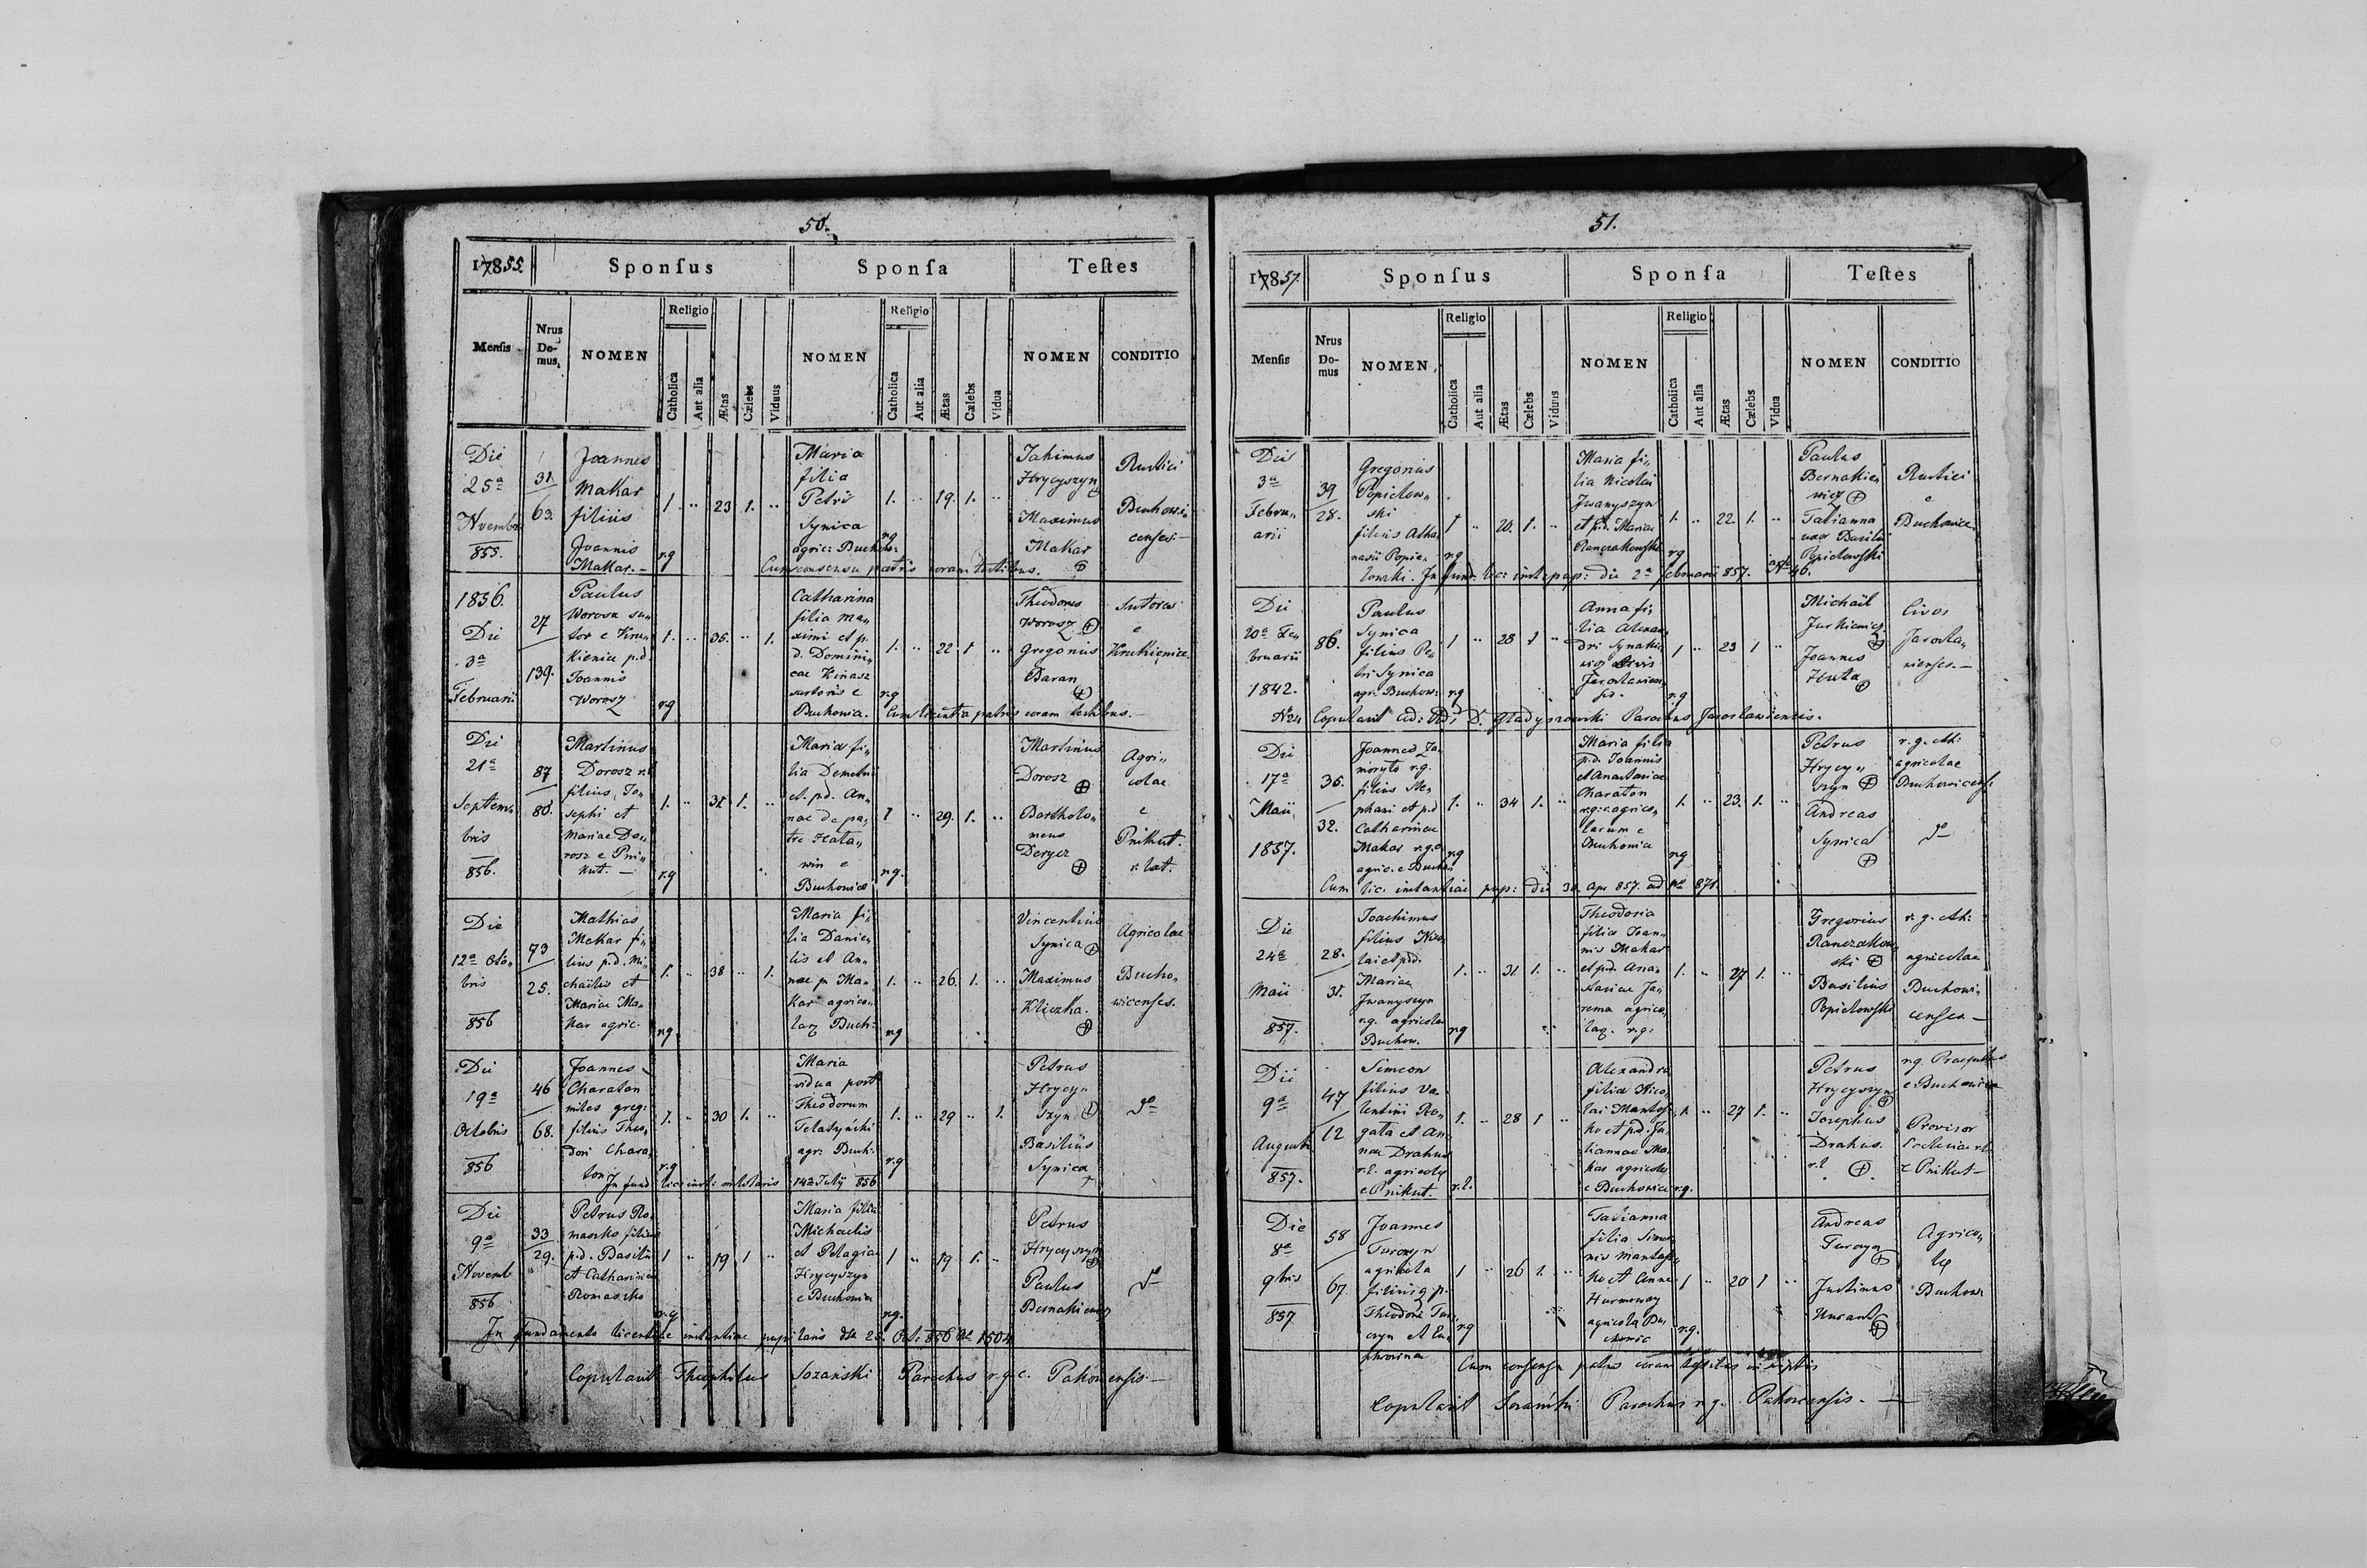 50.
1855.
Sponſus
Sponſa
Teſtes
Menſis
Nrus Do- mus,
NOMEN
Religio
Catholica
Aut alia
Ætas
Cælebs
Viduus
NOMEN
Religio
Catholica
Aut alia
Ætas
Cælebs
Vidua
NOMEN
CONDITIO
Die
25ª
Novemb
855.
31
63.
Joannes
Makar
filius
Joannis
Makar. –
rg
1. .. 23 1. ..
Maria
filia
Petri
Synica
agric: Buchow:
rg
1. .. 19. 1. ..
Jakimus
Hrycyszyn
Maximus
Makar
Rustici
Buchowi-
censes –
Cum consensu patris coram testibus.
1856.
Die
3ª
Februarii
27
139.
Paulus
Worosz su„
tor e Kru„
kienice p.d.
Joannis
Worosz
rg
1. .. 36. .. 1.
Catharina
filia Ma„
ximi et p.
d. Domini„
cae Kinasz
sartoris e
Buchowice.
rg
1. .. 22 1 ..
Theodorus
Worosz
Gregorius
Baran
Sutores
e
Krukienice
Cum licentia patris coram testibus. –
Die
21ª
Septem„
bris
856.
87
80.
Martinus
Dorosz r.l.
filius, Jo„
sephi et
Mariae Do„
rosz e Pni„
kut. –
rg
1. .. 31 1. ..
Maria fi„
lia Demetrii
et. p.d. An„
nae de pa„
tre
win e
Buchowice
rg.
1 .. 29. 1. ..
Martinus
Dorosz
Bartholo„
meus
Agri„
colae
e
Pnikut.
r. lat.
Die
12ª Octo„
bris
856
73
25.
Mathias
Makar fi„
lius p.d. Mi„
chaëlis et
Mariae Ma„
kar agric.
rg
1. .. 38 .. 1.
Maria fi„
lia Danie„
lis et An„
nae p. Ma„
kar agrico„
Buch:
rg
1. .. 26. 1. ..
Vincentius
Synica
Maximus
Kliczka.
Agricolae
Bucho„
wicenses.
Die
19ª
Octobris
856
46
68.
Joannes
Charaton
miles greg:
filius Theo„
dori Chara
ton
rg
1. .. 30 1. ..
Maria
vidua post
Theodorum
Telatyński
agr: Buch:
rg
1. .. 29 .. 1.
Petrus
Hrycy„
szyn
Basilius
Synica
dº
In fund lic: inst: militaris 14ª July 856
Die
9ª
Novemb
856
33
29.
Petrus Ro„
maszko filius
p.d. Basilii
et Catharinae
Romaszko
rg
1 .. 19 1 ..
Maria filia
Michaelis
et Pelagiae
Hrycyszyn
e Buchowice
rg.
1 .. 19 1. ..
Petrus
Hrycyszyn
Paulus
Bernakiewicz
dº
In fundamento licentiae instantiae pupilaris dto Oct: 856 Nº 1504
Copulavit Theophilus Sozański Parochus r.g.c. –
51.
1857.
Sponſus
Sponſa
Teſtes
Menſis
Nrus Do- mus
NOMEN
Religio
Catholica
Aut alia
Ætas
Cælebs
Viduus
NOMEN
Religio
Catholica
Aut alia
Ætas
Cælebs
Vidua
NOMEN
CONDITIO
Die
3ª
Febru„
arii
39
28.
Gregorius
Popielow„
ski
filius Atha„
nasii Popie„
lowski.
rg
1 .. 20. 1. ..
Maria fi„
lia Nicolai
Iwanyszyn
et p.d. Mariae
Ranczakowski
rg
1. .. 22. 1. ..
Paulus
Bernakie„
wicz
Tatianna
uxor Basilii
Popielowski
Rustici
e
Buchowice
In fund. lic: inst: pup: die 2ª februarii 857. 46.
Die
20ª Fe„
bruarii
1842.
86.
Paulus
Synica
filius Pe„
tri Synica
agr: Buchow:
rg
1 .. 28 1 ..
Anna fi„
lia Alexan„
dri Synakie„
wicz civis
Jaroslavien„
sis.
rg
1 .. 23 1 ..
Michaël
Jurkiewicz
Joannes
Huta
Cives
Jarosla„
vienses. –
Copulavit Parochus Jaroslaviensis.
Die
17ª
Maii
1857.
36.
32.
Joannes Za„
moryto r.g.
filius Ste„
phani et p.d.
Catharinae
Makar r.g.
agric. e Buchow
rg
1. .. 34 1. ..
Maria filia
p.d. Joannis
et Anastasiae
Charaton
r.g.c. agrico„
larum e
Buchowice
rg
1. .. 23. 1. ..
Petrus
Hrycy„
szyn
Andreas
Synica
r. g. rit:
agricolae
Buchowicens:
dº
Cum lic: instantiae pup: die 30. Apr 857. ad Nº 871.
Die
24ª
Maii
857.
28.
31.
Joachimus
filius Nico„
lai et p.d.
Mariae
Iwanyszyn
r.g. agricolae
Buchow.
rg
1. .. 31 1. ..
Theodosia
filia Joan„
nis Makar
et p.d. Ana„
stasiae Ja„
rema agrico„
r.g:
1. .. 27 1. ..
Gregorius
Ranczakow„
ski
Basilius
Popielowski
r. g. rit:
agricolae
Buchowi„
censes –
Die
9ª
Augusti
857.
47
12
Simeon
filius Va„
lentini Ro„
gala et An„
nae Drahus
r.l. agricolae
e Pnikut.
r.l.
1. .. 28 1 ..
Alexandra
filia Nico„
lai
ko et p.d. Ju„
liannae Ma„
kar agricolae
e Buchowice
r.g.
1. .. 27 1. ..
Petrus
Hrycyszyn
Josephus
Drahus.
r.l.
rg Praefectus
e Buchowice
Provisor
Ecclesiae r.l.
e Pnikut –
Die
8ª
9bris
857
58
67.
Joannes
Turczyn
agricola
filius p.
Theodori Tur„
czyn et Eu„
phrosinae
rg
1 .. 26 1. ..
Tatianna
filia Simeo„
nis
ko et Annae
agricola Bu„
chowice
rg.
1 .. 20 1 ..
Andreas
Turczyn
Justinus
Agrico„
Buchow
Cum consensu patris coram testibus
Copulavit Sozański Parochus r.g. –